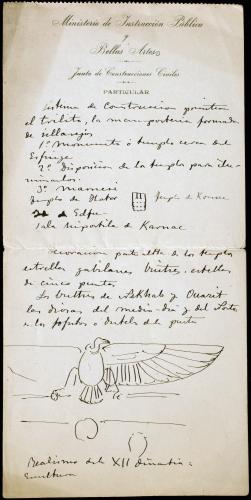 Ministerio de Instrucción Pública
y
Bellas Artes
Junta de Construcciones Civiles
PARTICULAR
Sistema de Construccion
el trilito, la mamposteria formada
de sillarejos
1º Monumento ó templo cerca del
Esfinge
2º Disposicion de los templos para ilu-
minarlos.
3º Mamisi
Templo de Hator Templo de Konsu
de Edfu
Sala hipostila de Karnac
Decoracion parte alta de los templos
estrellas gabilanes buitres estrellas
de cinco puntas
Los buitres de Nekhab y Ouazit
las diosas del medio-dia y del Norte
en los sofitos o dinteles de la puerta
Realismo de la XII dinastia =
escultura